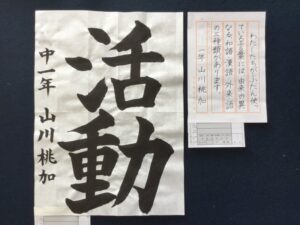 活動
中一年 山川桃加
わたしたちがふだん使っ
ている言葉には、由来の異
なる和語・漢語・外来語
の三種類があります。
一年 山川桃加